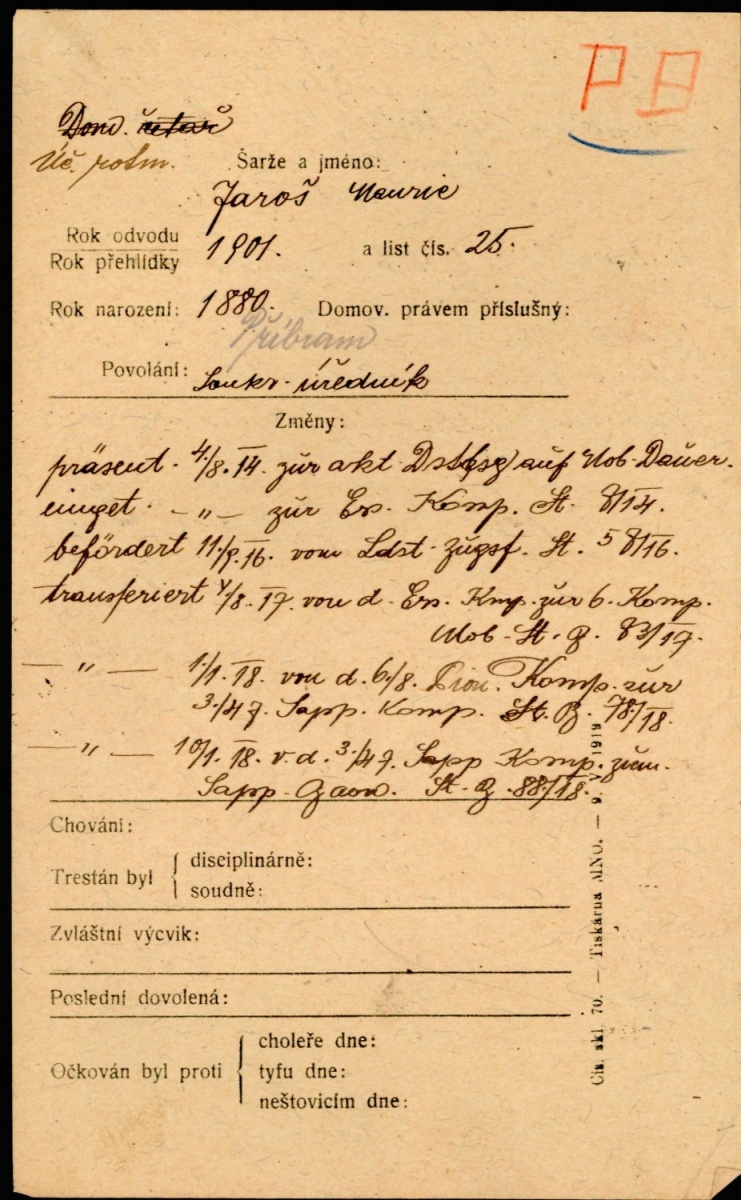 PB
Dom. četař
Úč. rotm.
Šarže a jméno:
Jaroš Mauric
Rok odvodu
Rok přehlídky
1901. a list čís. 25.
Rok narození: 1880. Domov. právem příslušný:
Příbram
Povolání: Soukr. úředník
Změny:
präsent. 4./8. 14. zur akt. Dstlsg auf Mob. Dauer.
einget. – „ – zur Ers. Komp. St. 8/14.
befördert 11./9. 16. vom Ldst. zugsf. St. 58/16.
transferiert 1/8. 17. von d. Ers. Kmp. zur 6. Komp.
Mob. St. B. 83/17.
– „ – 1./1. 18. von d. 6./8. Pion. Komp. zur
3./47. Sapp. Komp. St. B. 78/18.
– „ – 10/1. 18. v. d. 3./47. Sapp Komp. zum
Sapp. Baon. St. B. 88/18.
Chování:
Trestán byl
disciplinárně:
soudně:
Zvláštní výcvik:
Poslední dovolená:
Očkován byl proti
choleře dne:
tyfu dne:
neštovicím dne:
Čís. skl. 70. — Tiskárna MNO. — 9. V. 1919